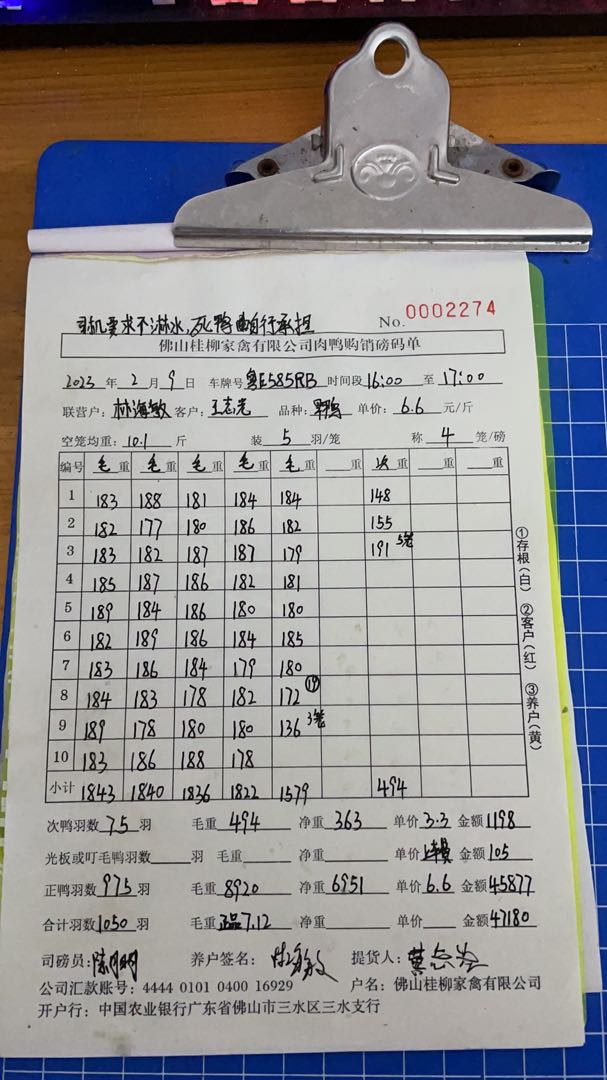 司机要求不淋水,死鸭由自行承担 No. 0002274
佛山桂柳家禽有限公司肉鸭购销磅码单
2023 年 2 月 9 日 车牌号 粤E585RB 时间段 16:00 至 17:00
联营户: 林海敏 客户: 王志光 品种: 单价: 6.6 元/斤
空笼均重: 10.1 斤 装 5 羽/笼 称 4 笼/磅
编号 毛重 毛重 毛重 毛重 毛重 重 次重 重 重
1 183 188 181 184 184 148
2 182 177 180 186 182 155
3 183 182 187 187 179 191 5笼
4 185 187 186 182 181
5 189 184 186 180 180
6 182 189 186 184 185
7 183 186 184 179 180
8 184 183 178 182 172 ⑲
9 189 178 180 180 136 3笼
10 183 186 188 178
小计 1843 1840 1836 1822 1579 494
次鸭羽数 75 羽 毛重 494 净重 363 单价 3.3 金额 1198
光板或叮毛鸭羽数 羽 毛重 净重 单价 金额 105
正鸭羽数 975 羽 毛重 8920 净重 6951 单价 6.6 金额 45877
合计羽数 1050 羽 毛重 正品7.12 净重 单价 金额 47180
司磅员: 养户签名: 提货人:
公司汇款账号: 4444 0101 0400 16929 户名: 佛山桂柳家禽有限公司
开户行: 中国农业银行广东省佛山市三水区三水支行
①存根(白) ②客户(红) ③养户(黄)